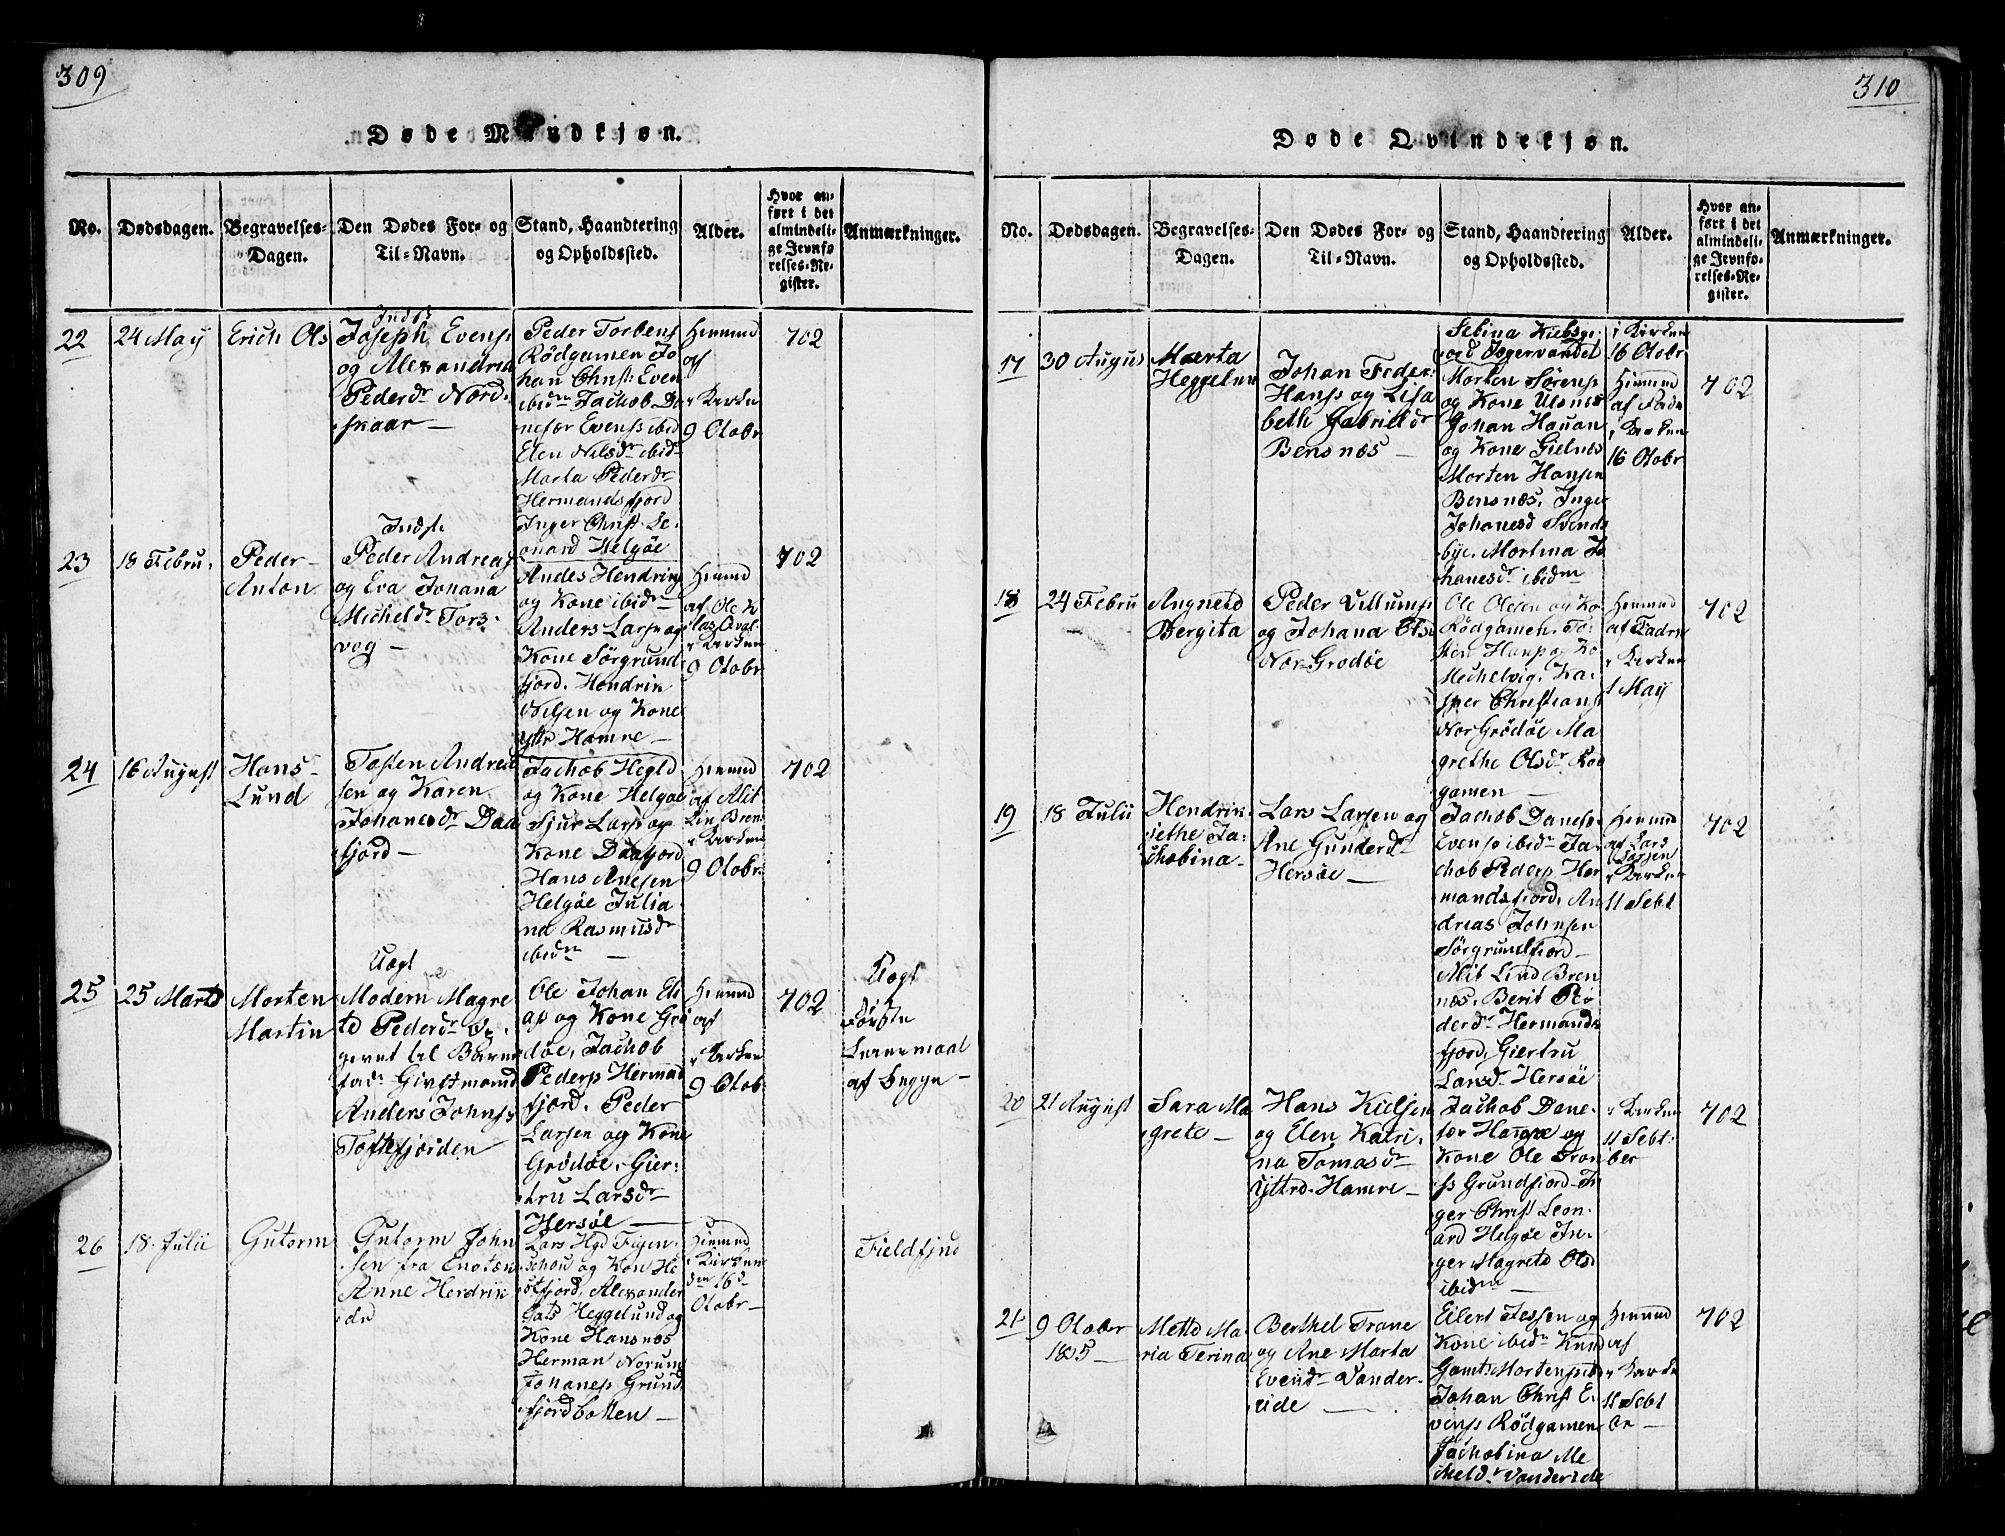 309
Døde Mandkjøn.
No.
Dødsdagen.
Begravelses-
Dagen.
Den Dødes For- og
Til-Navn.
Stand, Haandtering
og Opholdssted.
Alder.
Hvor an-
ført i det
almindeli-
ge Jevnfø-
relses-Re-
gister.
Anmærkninger.
22
24 May
Erich Ols
Indst
Joseph Evens
og Alexandria
Pedersdr Nord-
skaar
Peder Torbens
Rödgamen Jo
han Chrst: Even
ibidm Jachob Da
Evens ibid
Elen Nilsdr ibidm
Marta Pederdr
Hermandsfjord
Inger Christ. Le
onard Helgöe
Hiemmd
af
i Kirken
9 Otobr
702
23
18 Febru.
Peder
Anton
Indst.
Peder Andreas
og Eva Johana
Micheldr Tors-
vog
Andes Hendrik
og Kone ibidm
Anders Larsen og
Kone Sörgrund
fjord. Hendrik
Nilsen og Kone
Yttr Hamre
Hiemd
af Ole K
i Kirken
9 Otobr
702
24
16 August
Hans
Lund
Tosten Andrea
sen og Karen
Johanesdr Daa
fjord
Jachob Hegld
og Kone Helgöe
Sjur Larsen og
Kone Daafjord
Hans Anesen
Helgöe Julia
na Rasmusdr
ibidm
Hiemd
af Alit
Lin Bren
i Kirken
9 Otobr.
702
25
25 Marts
Morten
Martin
Uægt
Modern Magre
te Pederdr
til Barne
fadr Givtmand
Anders Johns
Toftefjorden
Ole Johan El
og Kone Grö
döe, Jachob
Peders Hermad
fjord. Peder
Larsen og Kone
Grödöe. Gier-
tru Larsdr
Hersöe
Hiemmd
af
i Kirken
9 Otobr.
702
Uægt
Förste
Leiermaal
af begge
26
18. Julii
Gutorm
Gutorm John
sen fra
Anne Hendrik
dr
Lars Hgd Figen-
schou og Kon He
Alexander
Heggelund og
Kone Hansnes
Herman Norum
Johanes Grund
fjordbotten
Hiemmd
i Kirken
dn 16d
Otobr
Fieldfjud
310
Døde Qvindekjøn.
No.
Dødsdagen.
Begravelses-
Dagen.
Den Dødes For- og
Til-Navn.
Stand, Haandtering
og Opholdssted.
Alder.
Hvor an-
ført i det
almindeli-
ge Jevnfø-
relses-Re-
gister.
Anmærkninger.
17
30 Augus
Marta
Heggelun
Johan Feder:
Hans og Lisa
beth Gabrieldr
Bensnæs
Morten Sörens
og Kone Ulsnes
Johan Hauan
og Kone Gielnes
Morten Hansen
Bensnæs, Inger
Johanesd Svends
bye. Mortina Jo
hanesdr ibidm
i Kirken
16 Otobr
Hiemmd
af Fadr
i Kirken
16 Otobr
702
18
24 Febru
Angnete
Bergita
Peder Villums
og Johana Ols
Nor-Grodöe
Ole Olesen og Ko
Rödgamen. To-
sten Hans og Ko
Mechelvig. Ka-
sper Christians
Nor Grödöe Ma
grethe Olsdr Röd
gamen
Hiemmd
af Fadrn
i Kirken
1 May
702
19
18 Julii
Hendrik-
jethe Ja-
chobina
Lars Larsen og
Ane Gunderd
Hersöe
Jachob Danefr
Evens ibidm Ja-
chob Peders Her
mandsfiord. An
dreas Johnsen
Sörgrundfiord
Alit Lind Bren
næs. Berit Pe
derdr Hermands
fjord, Giertru
Larsdr Hersöe
Hiemmd
af Lars
Larsen
i Kirken
11 Sebt
702
20
21 August
Sara Ma
grete
Hans Kielsen
og Elen Katri-
na Tomasdr
Yttrd. Hamre
Jachob Dane-
fær Hanse og
Kone Ole Tron
s Grundfiord In
ger Christ Leon-
ard Helgöe In-
ger Magrete Ols
ibidm
i Kirken
11 Sebt:
ber
702
21
9 Otober
1825
Mette Ma
ria Ferina
Berthel Trane
og Ane Marta
Evendr Vander-
eide
Eilert Jessen og
Kone ibidm Knud
Gamt Mortensnes
Johan Christ E.
vens Rödgamen
Jachobina Me
cheldr Vandereide
Hiemmd
af
i Kirke
11 Sebt
br
702